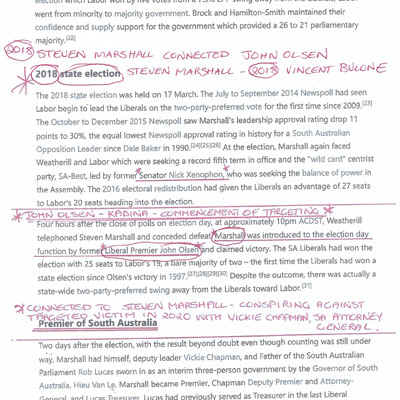 election which Labor won by five votes from a 
went from minority to majority government. Brock and Hamilton-Smith maintained their
confidence and supply support for the government which provided a 26 to 21 parliamentary
majority.[22]
2018 STEVEN MARSHALL CONNECTED JOHN OLSEN
* 2018 state election, STEVEN MARSHALL - 2018 VINCENT BULONE
The 2018 state election was held on 17 March. The July to September 2014 Newspoll had seen
Labor begin to lead the Liberals on the two-party-preferred vote for the first time since 2009.[23]
The October to December 2015 Newspoll saw Marshall's leadership approval rating drop 11
points to 30%, the equal lowest Newspoll approval rating in history for a South Australian
Opposition Leader since Dale Baker in 1990.[24][25][26] At the election, Marshall again faced
Weatherill and Labor which were seeking a record fifth term in office and the "wild card" centrist
party, SA-Best, led by former Senator Nick Xenophon, who was seeking the balance of power in
the Assembly. The 2016 electoral redistribution had given the Liberals an advantage of 27 seats
to Labor's 20 seats heading into the election.
* JOHN OLSEN - KADINA - COMMENCEMENT OF TARGETING *
Four hours after the close of polls on election day, at approximately 10pm ACDST, Weatherill
telephoned Steven Marshall and conceded defeat. Marshall was introduced to the election day
function by former Liberal Premier John Olsen and claimed victory. The SA Liberals had won the
election with 25 seats to Labor's 19, a bare majority of two – the first time the Liberals had won a
state election since Olsen's victory in 1997.[27][28][29][30] Despite the outcome, there was actually a
state-wide two-party-preferred swing away from the Liberals toward Labor.[31]
* CONNECTED TO STEVEN MARSHALL - CONSPIRING AGAINST
TARGETED VICTIM IN 2020 WITH VICKIE CHAPMAN, SA ATTORNEY
GENERAL.
Premier of South Australia
Two days after the election, with the result beyond doubt even though counting was still under
way, Marshall had himself, deputy leader Vickie Chapman, and Father of the South Australian
Parliament Rob Lucas sworn in as an interim three-person government by the Governor of South
Australia, Hieu Van Le. Marshall became Premier, Chapman Deputy Premier and Attorney-
General, and Lucas Treasurer. Lucas had previously served as Treasurer in the last Liberal